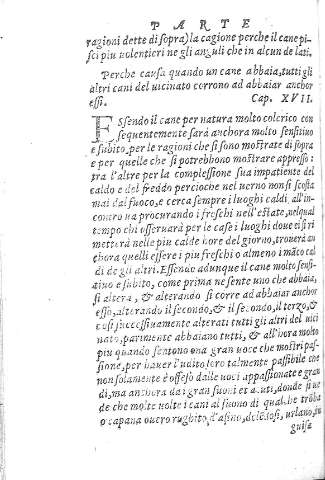 PARTE
ragioni dette di sopra) la cagione perche il cane pi-
sci piu uolentieri ne gli anguli che in alcun de lati.
Perche causa quando un cane abbaia, tutti gli
altri cani del uicinato corrono ad abbaiar anchor
essi. Cap. XVII.
ESsendo il cane per natura molto colerico con
sequentemente sarà anchora molto sensitiuo
e subito, per le ragioni che si sono mostrate di sopra
e per quelle che si potrebbono mostrare appresso:
tra l'altre per la complessione sua impatiente del
caldo e del freddo percioche nel uerno non si scosta
mai dal fuoco, e cerca sempre i luoghi caldi, all'in-
contro ua procurando i freschi nell'estate, nelqual
tempo chi osseruarà per le case i luoghi doue essi ri
mettera nelle piu calde hore del giorno, trouerà an
chora quelli essere i piu freschi o almeno i māco cal
di de gli altri. Essendo adunque il cane molto sensi-
tiuo e subito, come prima ne sente uno che abbaia,
si altera, & alterando si corre ad abbaiar anchor
esso, alterando il secondo, & il secondo, il terzo, &
cosi successiuamente alterati tutti gli altri del uici
nato, parimente abbaiano tutti, & all'hora molto
piu quando sentono una gran uoce che mostri pas-
sione, per hauer l'udito loro talmente passibile che
non solamente è offeso dalle uoci appassionate e gran
di, ma anchora dai gran suoni et acuti, donde si ue
de che molte uolte i cani al suono di qualche trōba
o capana ouero rughito d'asino, dolēdosi, urlano, in
guisa